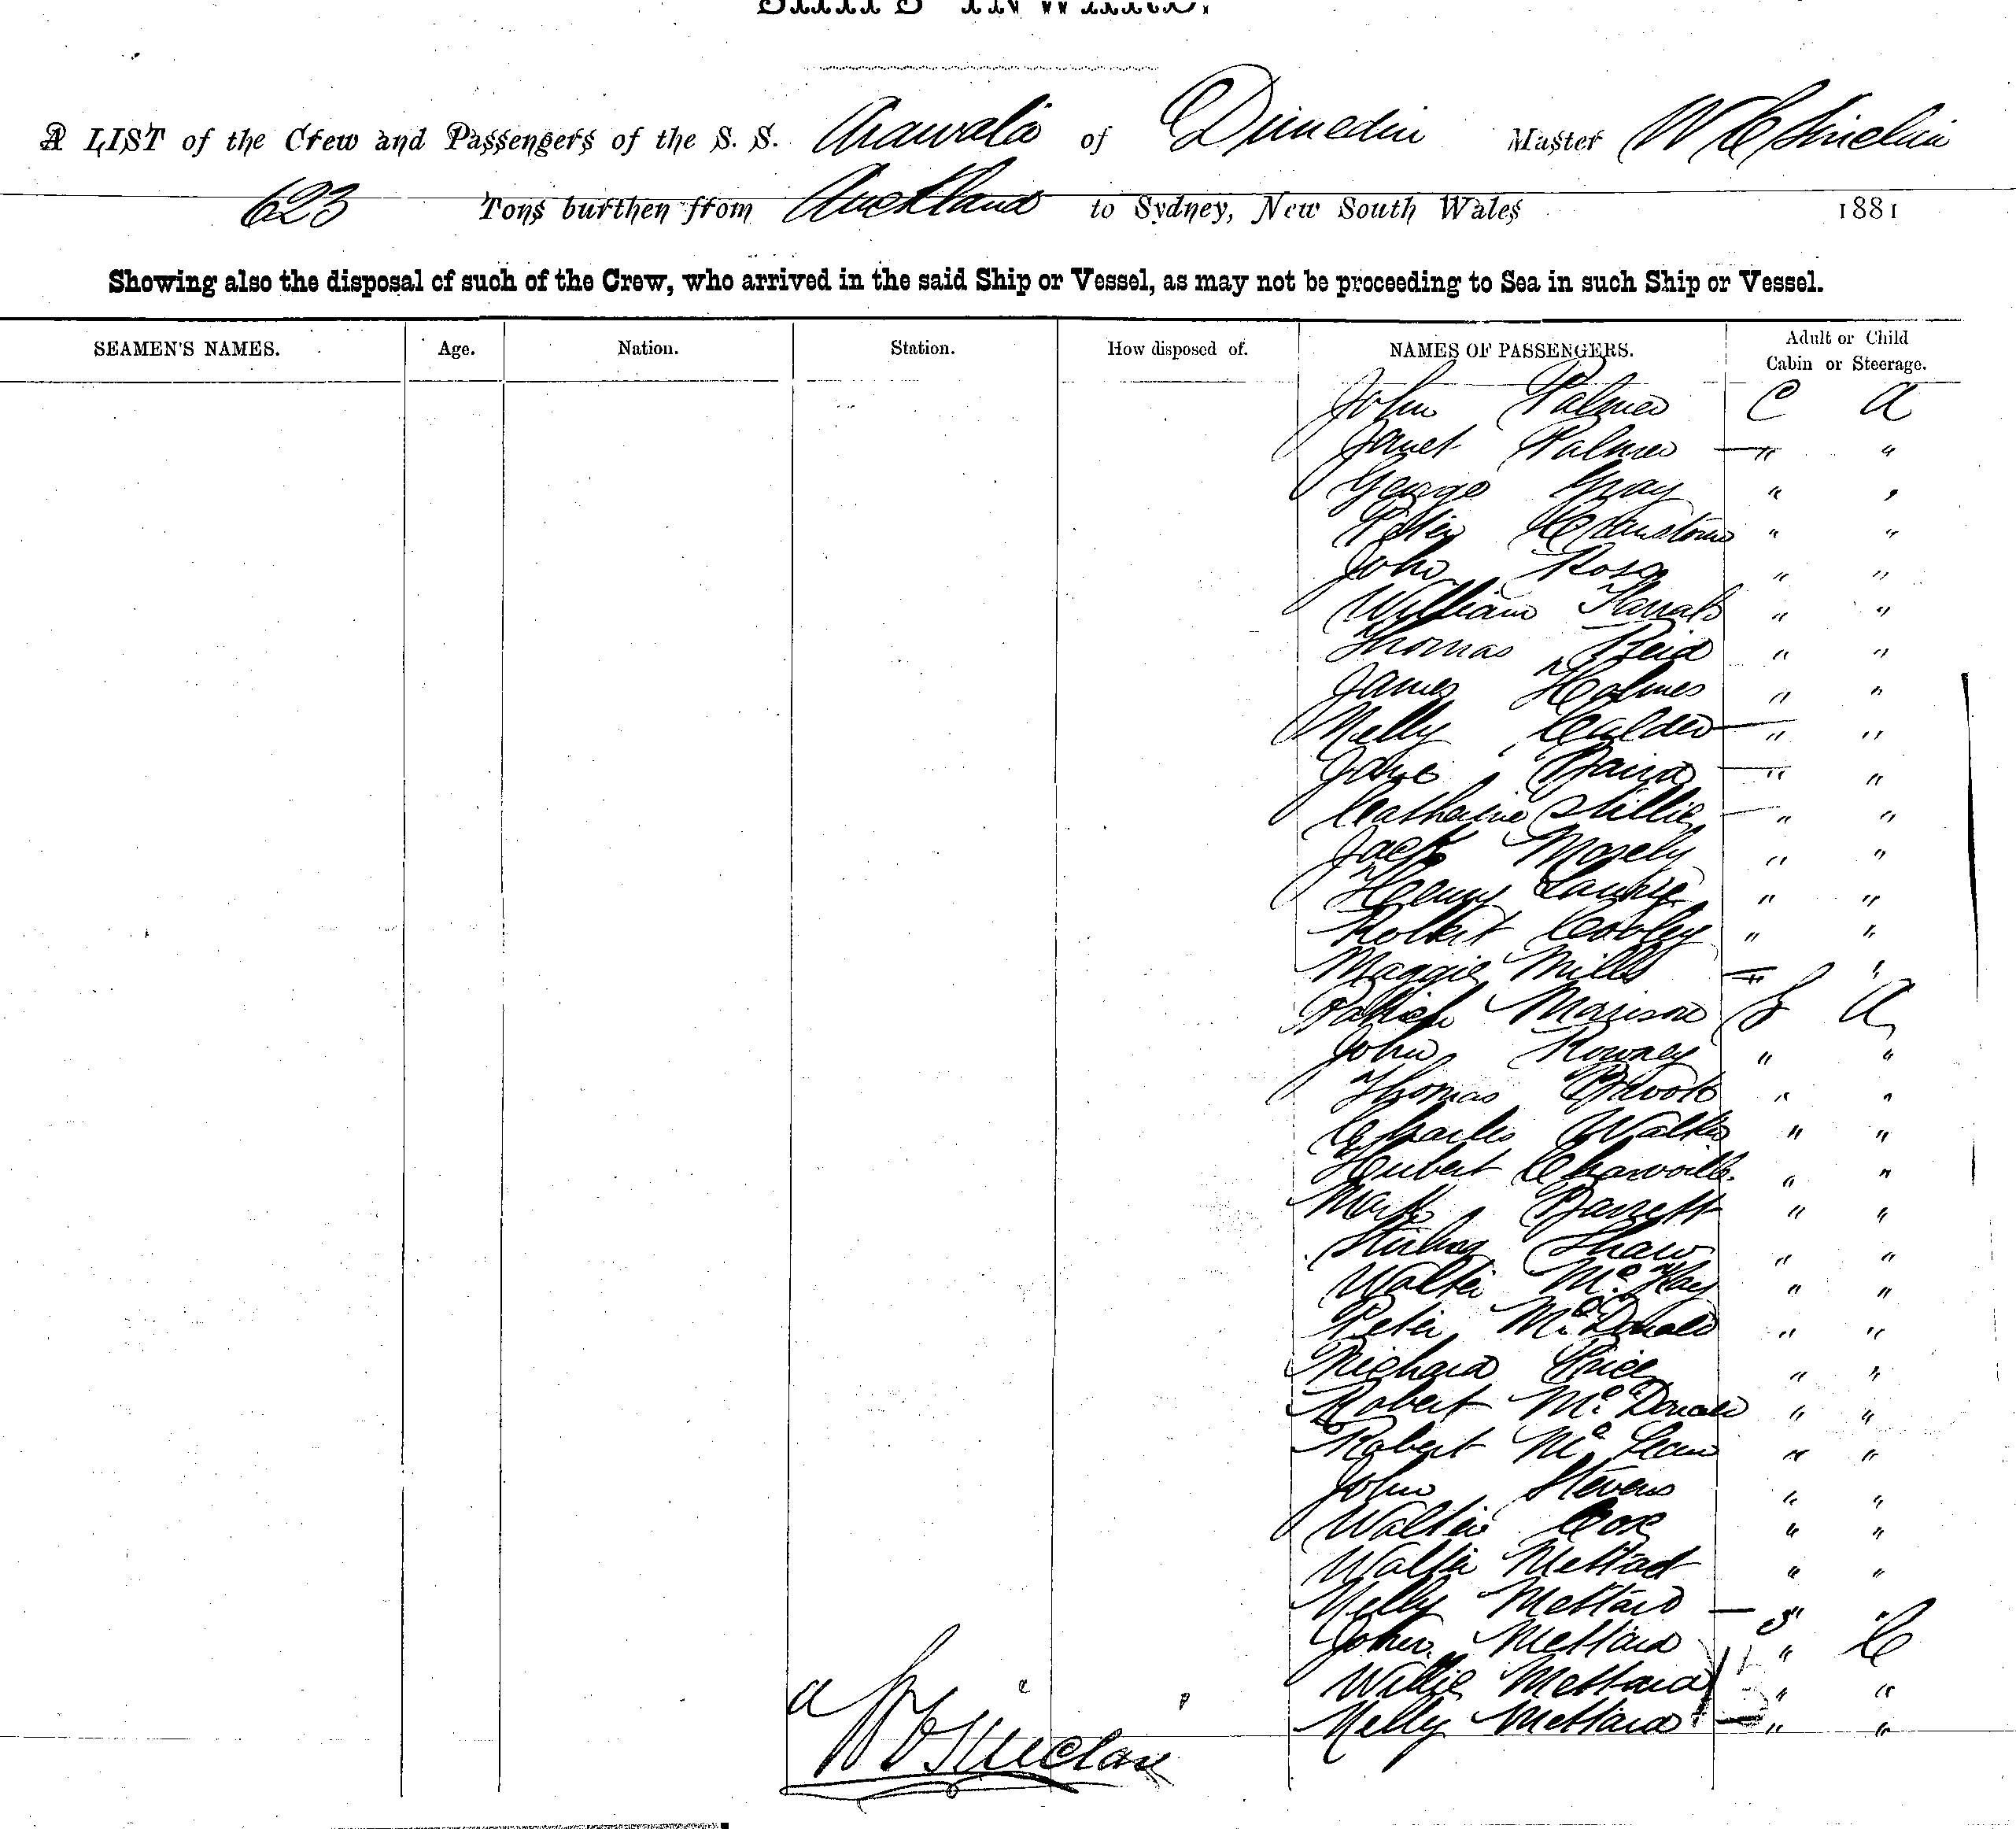 A LIST of the Crew and Passengers of the S. S. Arawata of Dunedin Master W C Sinclair
623 Tons burthen from Auckland to Sydney, New South Wales 1881
Showing also the disposal of such of the Crew, who arrived in the said Ship or Vessel, as may not be proceeding to Sea in such Ship or Vessel.
SEAMEN'S NAMES. Age. Nation. Station. How disposed of. NAMES OF PASSENGERS. Adult or Child Cabin or Steerage.
John Palmer C A
Janet Palmer — " "
George Gray " "
Peter " "
John Ross " "
William " "
Thomas Reid " "
James Holmes " "
Nelly Calder — " "
Jane Baird — " "
Catherine — " "
Jack Mosely " "
Henry " "
Robert Cooley " "
Maggie Mills — " "
Patrick Morrison S A
John Rowney " "
Thomas " "
Charles Walter " "
Hubert " "
Mark Barrett " "
Stirling Shaw " "
Walter McKay " "
Peter McDonald " "
Richard Price " "
Robert McDonald " "
Robert McLean " "
John Stevens " "
Walter Cox " "
Walter " "
Nelly — " "
John " C
Willie " "
Nelly — " "
W C Sinclair